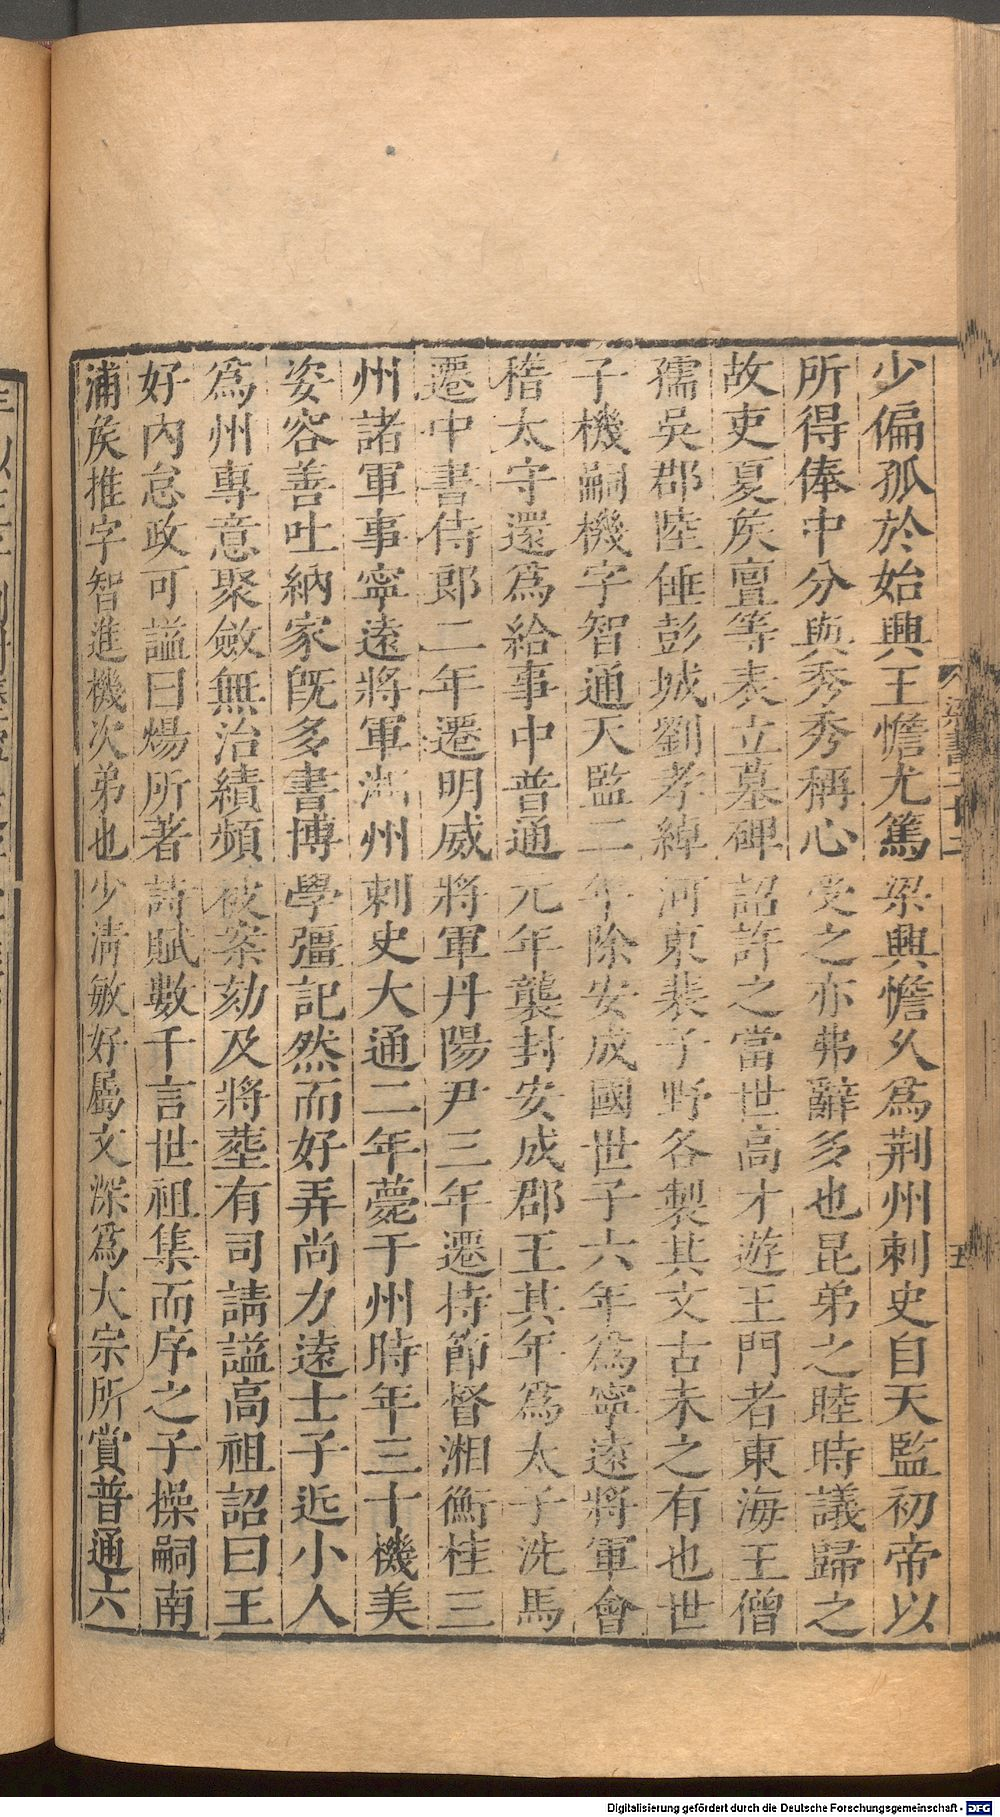 少偏孤於始興王憺尤篤梁興憺久爲荆州刺史自天監初帝以
所得俸中分與秀秀稱心受之亦弗辭多也昆弟之睦時議歸之
故吏夏矦亶等表立墓碑詔許之當世高才遊王門者東海王僧
孺吳郡陸倕彭城劉孝綽河東裴子野各製其文古未之有也世
子機嗣機字智通天監二年除安成國世子六年爲寧遠將軍會
稽太守還爲給事中普通元年襲封安成郡王其年爲太子洗馬
遷中書侍郎二年遷明威將軍丹陽尹三年遷持節督湘衡桂三
州諸軍事寧遠將軍湘州刺史大通二年薨于州時年三十機美
姿容善吐納家旣多書博學彊記然而好弄尚力遠士子近小人
爲州專意聚斂無治績頻被案劾及將葬有司請謚高祖詔曰王
好內怠政可謚曰煬所著詩賦數千言世祖集而序之子操嗣南
浦矦推字智進機次弟也少淸敏好屬文深爲太宗所賞普通六
五
Digitalisierung gefördert durch die Deutsche Forschungsgemeinschaft - DFG